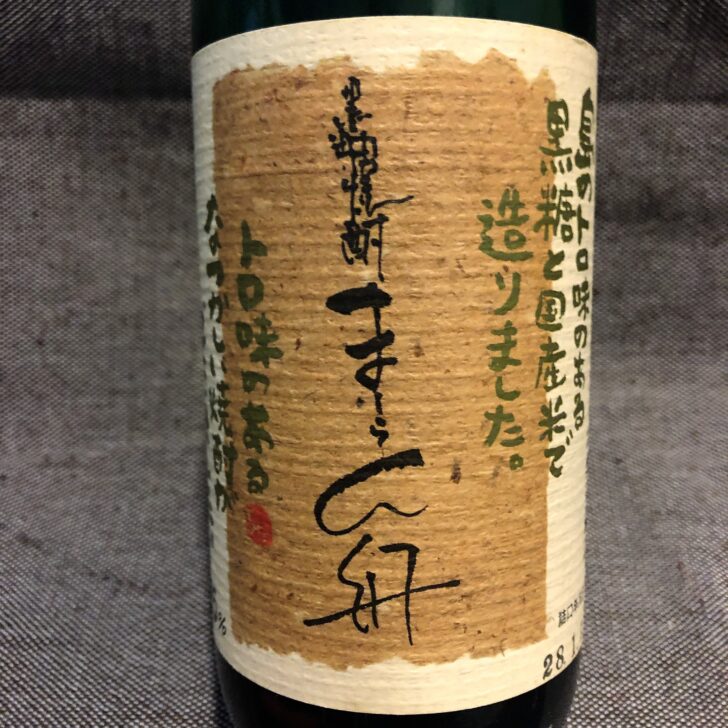 島のトロ味のある
黒糖と国産米で
造りました。
黒糖焼酎
まーらん舟
トロ味のある
なつかしい焼酎が
%
詰口
28.1